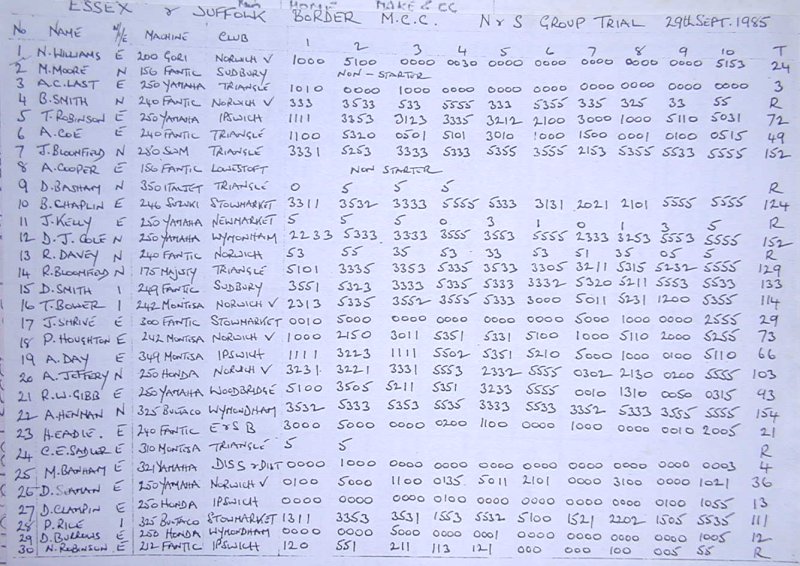 ESSEX & SUFFOLK BORDER M.C.C. N & S GROUP TRIAL 29th SEPT. 1985
No NAME N/E MACHINE CLUB 1 2 3 4 5 6 7 8 9 10 T
1 N. WILLIAMS E 200 GORI NORWICH V 1000 5100 0000 0030 0000 0000 0000 0000 0000 5153 24
2 M. MOORE N 156 FANTIC SUDBURY NON-STARTER
3 A.C. LAST E 250 YAMAHA TRIANGLE 1010 0000 1000 0000 0000 0000 0000 0000 0000 0000 3
4 B. SMITH N 240 FANTIC NORWICH V 333 3533 533 5555 333 5355 335 325 33 55 R
5 T. ROBINSON E 250 YAMAHA IPSWICH 1111 3353 3123 3335 3212 2100 3000 1000 5110 5031 72
6 A. COE E 240 FANTIC TRIANGLE 1100 5320 0501 5101 3010 1000 1500 0001 0100 0515 49
7 J. BLOOMFIELD N 280 SWM TRIANGLE 3331 5253 3333 5333 5355 3555 2153 5355 5533 5555 152
8 A. COOPER E 156 FANTIC LOWESTOFT NON STARTER
9 D. BASHAM N 350 ITALJET TRIANGLE 0 5 5 5 R
10 B. CHAPLIN E 246 SUZUKI STOWMARKET 3311 3532 3333 5555 5333 3131 2021 2101 5555 5555 124
11 J. KELLY E 250 YAMAHA NEWMARKET 5 5 5 0 3 1 0 1 3 5 R
12 D.J. COLE N 250 YAMAHA WYMONHAM 2233 5333 3333 3555 3553 5555 2333 3253 5553 5555 152
13 R. DAVEY N 240 FANTIC NORWICH 53 55 35 53 33 53 51 35 05 5 R
14 R. BLOOMFIELD N 175 MAJESTY TRIANGLE 5101 3335 3353 5335 3533 3305 3211 5315 5232 5555 129
15 D. SMITH I 249 FANTIC SUDBURY 3551 5323 3333 5335 5333 3332 5320 5211 5553 5533 133
16 T. BOWER I 242 MONTESA NORWICH V 2313 5335 3552 3555 5333 3000 5011 5231 1200 5355 114
17 J. SHRIVE E 300 FANTIC STOWMARKET 0010 5000 0000 0000 0000 0000 5000 1000 0000 2555 29
18 P. HOUGHTON E 242 MONTESA NORWICH V 1000 2150 3011 5351 5331 5100 1000 5110 2000 5255 73
19 A. DAY E 349 MONTESA IPSWICH 1111 3223 1111 5502 5351 5210 5000 1000 0100 5110 66
20 A. JEFFERY N 250 HONDA NORWICH V 3231 3221 3331 5553 2332 5555 0302 2130 0200 5555 103
21 R.W. GIBB E 250 YAMAHA WOODBRIDGE 5100 3505 5211 5351 3233 5555 0010 1310 0050 0315 93
22 A. HENMAN N 325 BULTACO WYMONDHAM 3532 5333 5353 5535 3333 5533 3352 5333 3555 5555 154
23 H. EADIE. E 240 FANTIC E & S B 3000 5000 0000 0200 1100 0000 1000 0000 0010 2005 21
24 C.E. SADLER E 310 MONTESA TRIANGLE 5 5 R
25 M. BANHAM E 321 YAMAHA DISS & DIST 0000 1000 0000 0000 0000 0000 0000 0000 0000 0003 4
26 D. SEAMAN E 250 YAMAHA NORWICH V 0100 5000 1100 0135 5011 2101 0000 3100 0000 1021 36
27 D. CLAMPIN E 250 HONDA IPSWICH 0000 0000 0000 0100 0000 0000 0000 0000 0100 1055 13
28 P. RICE I 325 BULTACO STOWMARKET 1311 3353 3531 1553 5532 5100 1521 2202 1505 5535 111
29 D. BURROWS E 250 HONDA WYMONDHAM 0000 0000 5000 0000 0001 0000 0000 0000 0000 1005 12
30 N. ROBINSON E 212 FANTIC IPSWICH 120 551 211 113 121 000 000 100 005 55 R